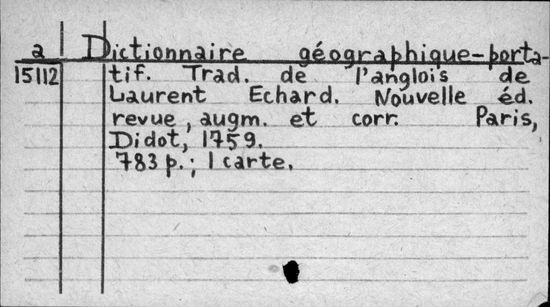 a Dictionnaire géographique-porta-
15112 tif. Trad. de l'anglois de
Laurent Echard. Nouvelle éd.
revue, augm. et corr. Paris,
Didot, 1759.
783 p.; 1 carte.